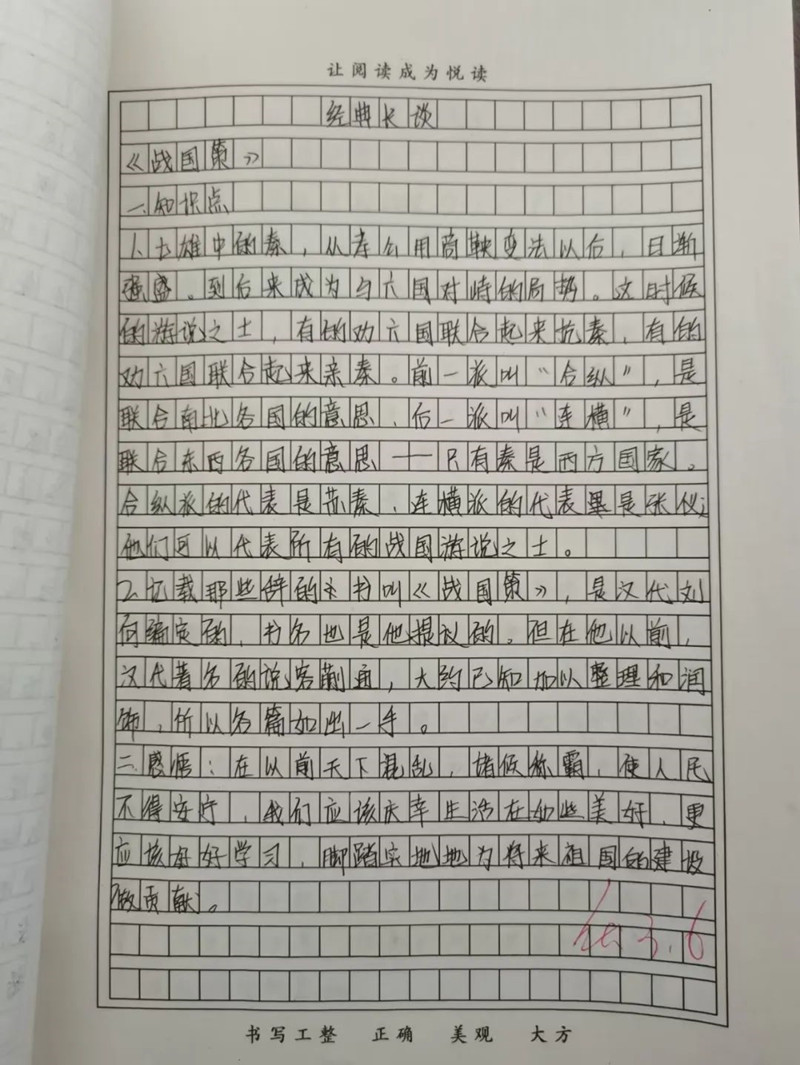 让阅读成为悦读
经典长谈
《战国策》
一、知识点
1、七雄中的秦，从孝公用商鞅变法以后，日渐
强盛。到后来成为与六国对峙的局势。这时候
的游说之士，有的劝六国联合起来抗秦，有的
劝六国联合起来亲秦。前一派叫“合纵”，是
联合南北各国的意思，后一派叫“连横”，是
联合东西各国的意思——只有秦是西方国家。
合纵派的代表是苏秦，连横派的代表是张仪；
他们可以代表所有的战国游说之士。
2、记载那些辞的书叫《战国策》，是汉代刘
向编定的，书名也是他提议的。但在他以前，
汉代著名的说客蒯通，大约已知加以整理和润
饰，所以各篇如出一手。
二、感悟：在以前天下混乱，诸候称霸，使人民
不得安宁，我们应该庆幸生活在如些美好，更
应该好好学习，脚踏实地地为将来祖国的建设
做贡献。
3.6
书写工整 正确 美观 大方